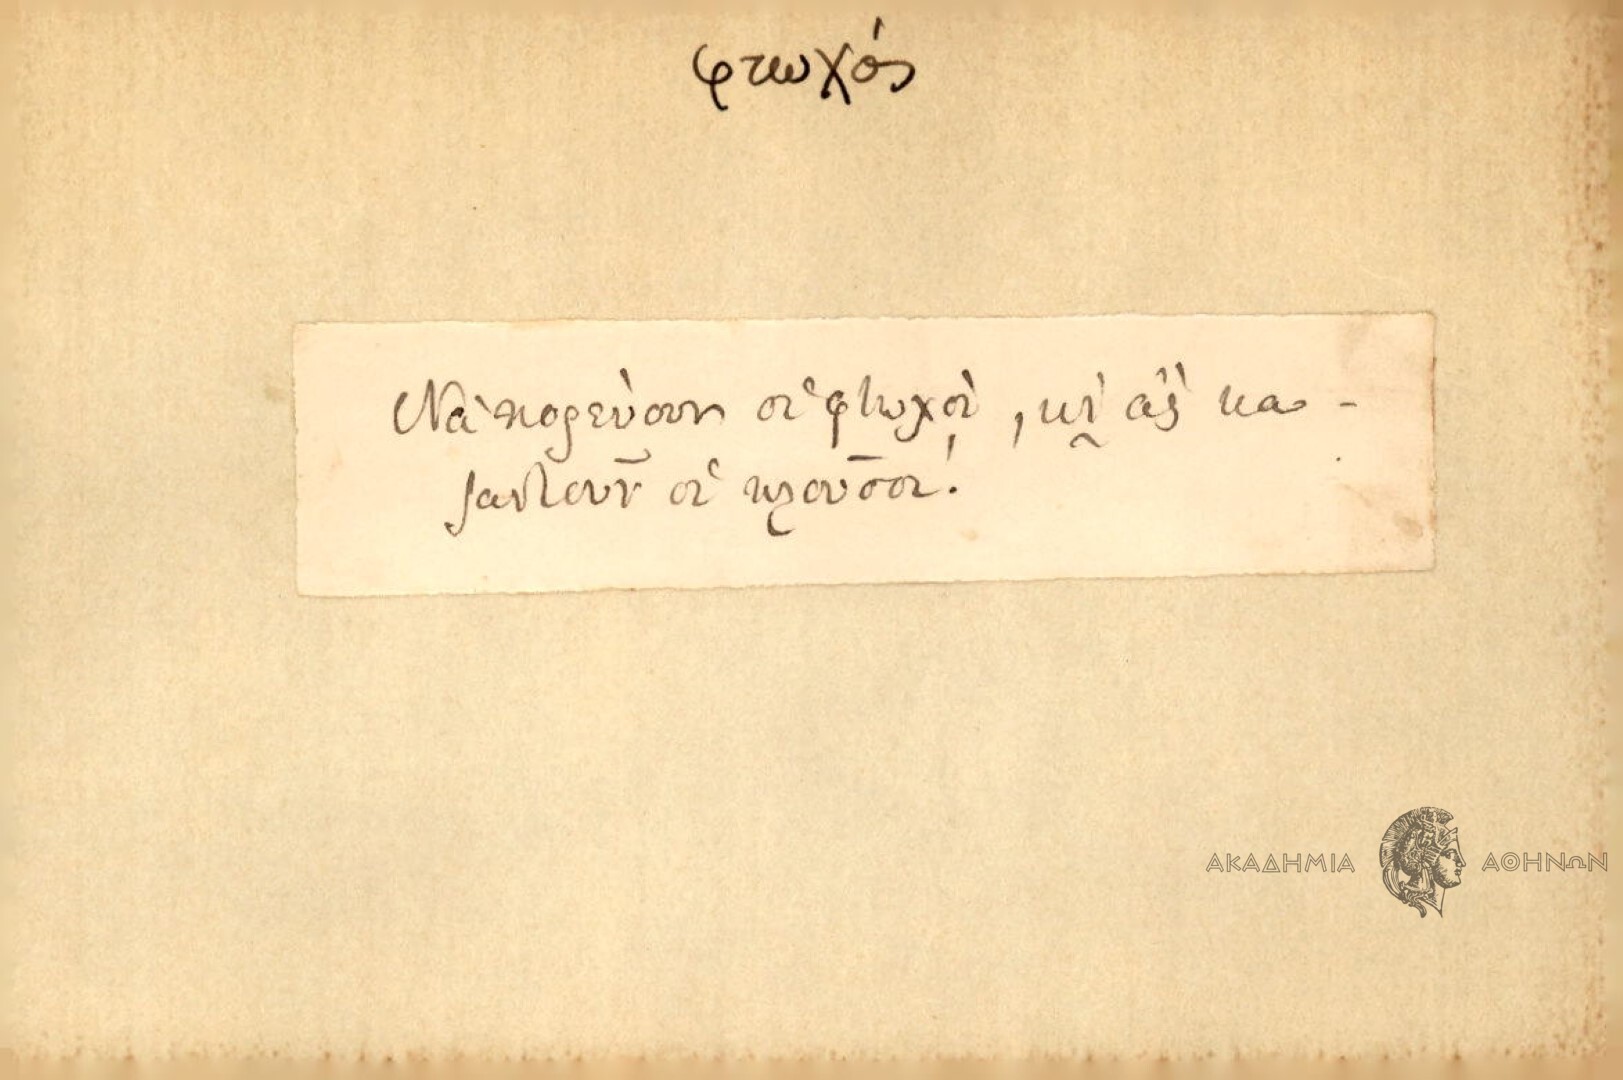 φτωχός
Νὰ πορεύουν οἱ φτωχοὶ, κῂ ἂς κα-
ζαντοῦν οἱ πλοῦσοι!
ΑΚΑΔΗΜΙΑ ΑΘΗΝΩΝ